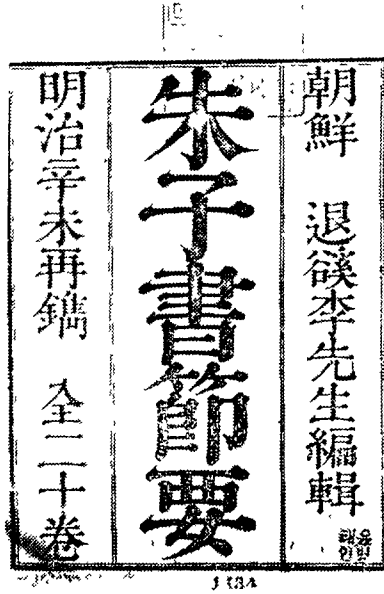 朝鮮 退谿李先生編輯
朱子書節要
明治辛未再鐫 全二十卷